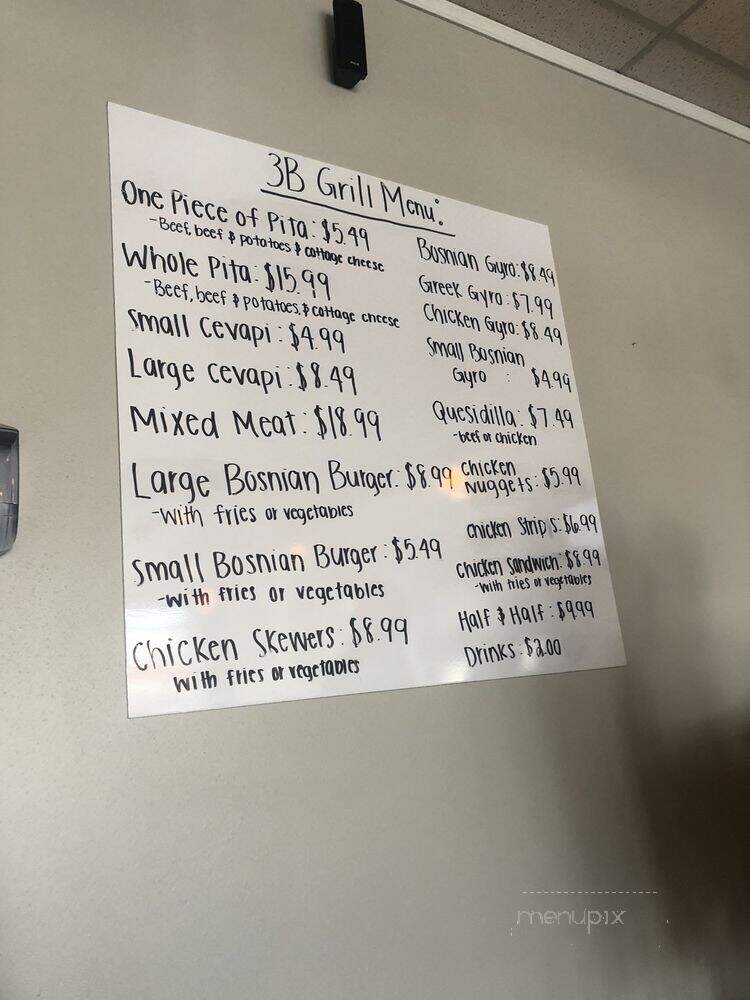 3B Grill Menu:
One Piece of Pita: $5.49
-Beef, beef & potatoes & cottage cheese
Whole Pita: $15.99
-Beef, beef & potatoes, & cottage cheese
Small Cevapi: $4.99
Large cevapi: $8.49
Mixed Meat: $18.99
Large Bosnian Burger: $8.99
-with fries or vegetables
Small Bosnian Burger: $5.49
-with fries or vegetables
Chicken Skewers: $8.99
with fries or vegetables
Bosnian Gyro: $8.49
Greek Gyro: $7.99
Chicken Gyro: $8.49
Small Bosnian
Gyro : $4.99
Quesidilla: $7.49
-beef or chicken
chicken
nuggets: $5.99
chicken Strips: $6.99
chicken Sandwich: $8.99
-with fries or vegetables
Half & Half: $9.99
Drinks: $2.00
menupix